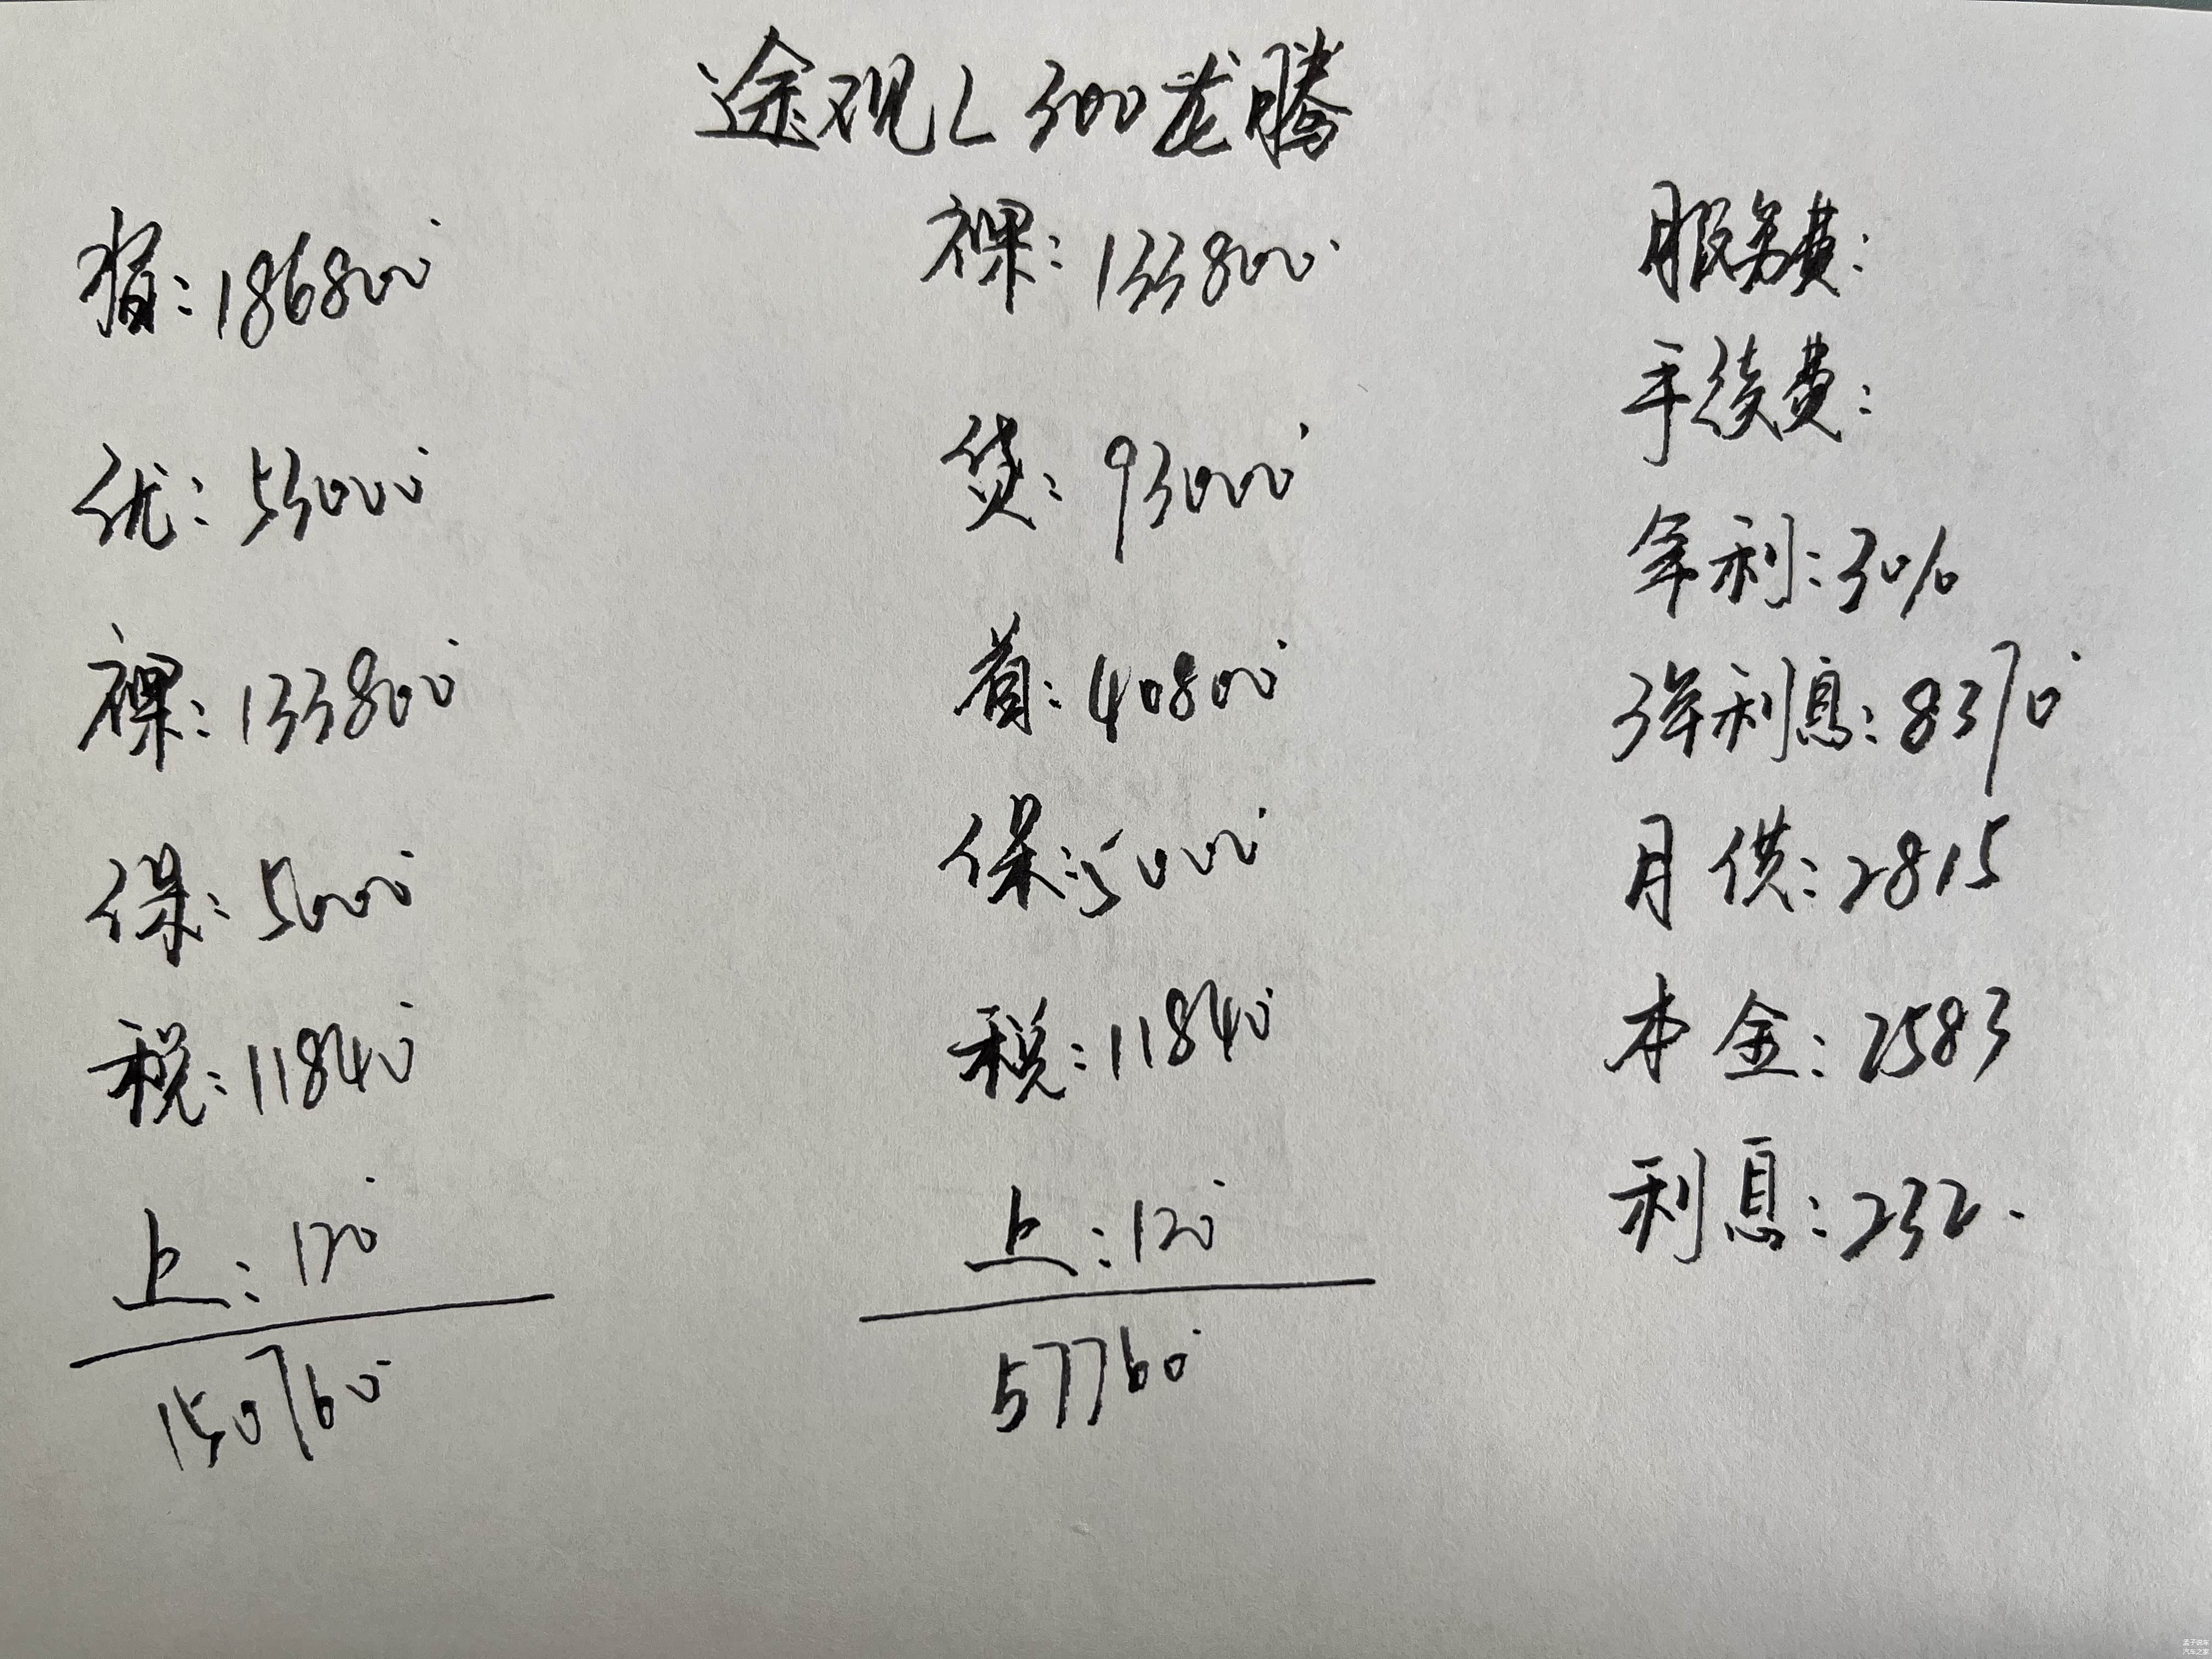 途观L 300龙腾
指:186800
优:53000
裸:133800
保:5000
税:11840
上:120
150760
裸:133800
贷:93000
首:40800
保:5000
税:11840
上:120
57760
服务费:
手续费:
年利:3%
3年利息:8370
月供:2815
本金:2583
利息:232.
孟子说车
汽车之家